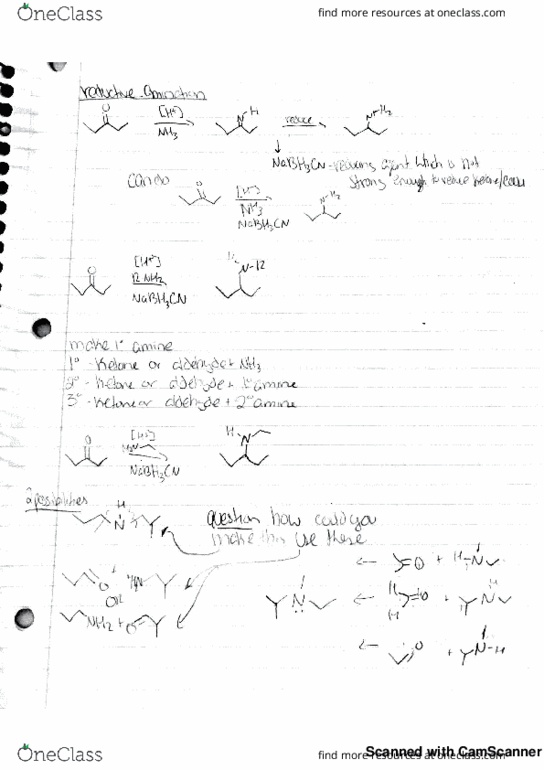 OneClass
find more resources at oneclass.com
reductive amination
[H+]
NH3
N-H
reduce
NH2
NaBH3CN - reducing agent which is not
strong enough to reduce ketone/
can do
[H+]
NH3
NaBH3CN
NH2
[H+]
NH2
NaBH3CN
make 1° amine
1° - Ketone or aldehyde + NH3
2° - Ketone or aldehyde + 1° amine
3° - Ketone or aldehyde + 2° amine
[H+]
NaBH3CN
H
N
2 possibilities
question how could you
make this use these
OR
NH2 +
OneClass
find more resources at oneclass.com
Scanned with CamScanner